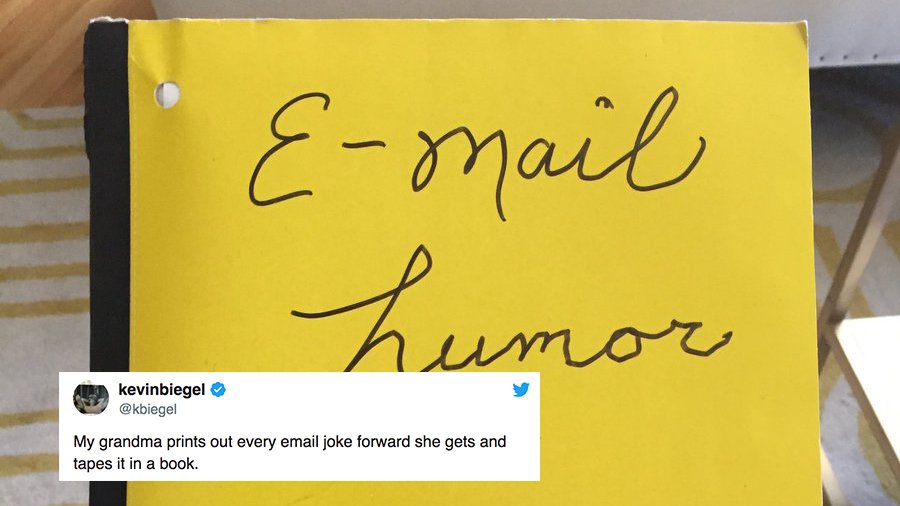 E-mail
humor
kevinbiegel
@kbiegel
My grandma prints out every email joke forward she gets and
tapes it in a book.